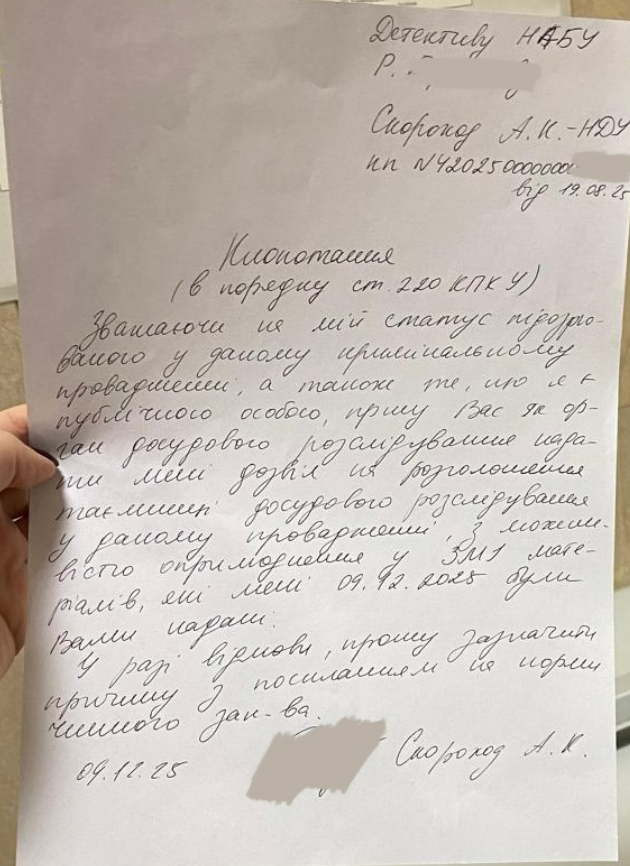 Детективу НАБУ
Р.
Скороход А.К. - НДУ
кп №42025000000
від 19.08.25
Клопотання
(в порядку ст. 220 КПК У)
Зважаючи на мій статус підозрю-
ваного у даному кримінальному
провадженні, а також те, що я є
публічного особого, прошу Вас як ор-
ган досудового розслідування нада-
ти мені дозвіл на розголошення
таємниці досудового розслідування
у даному провадженні, з можли-
вістю оприлюднення у ЗМІ мате-
ріалів, які мені 09.12.2025 були
Вами надані.
У разі відмови, прошу зазначити
причину з посиланням на норми
чинного зак-ва.
09.12.25
Скороход А.К.